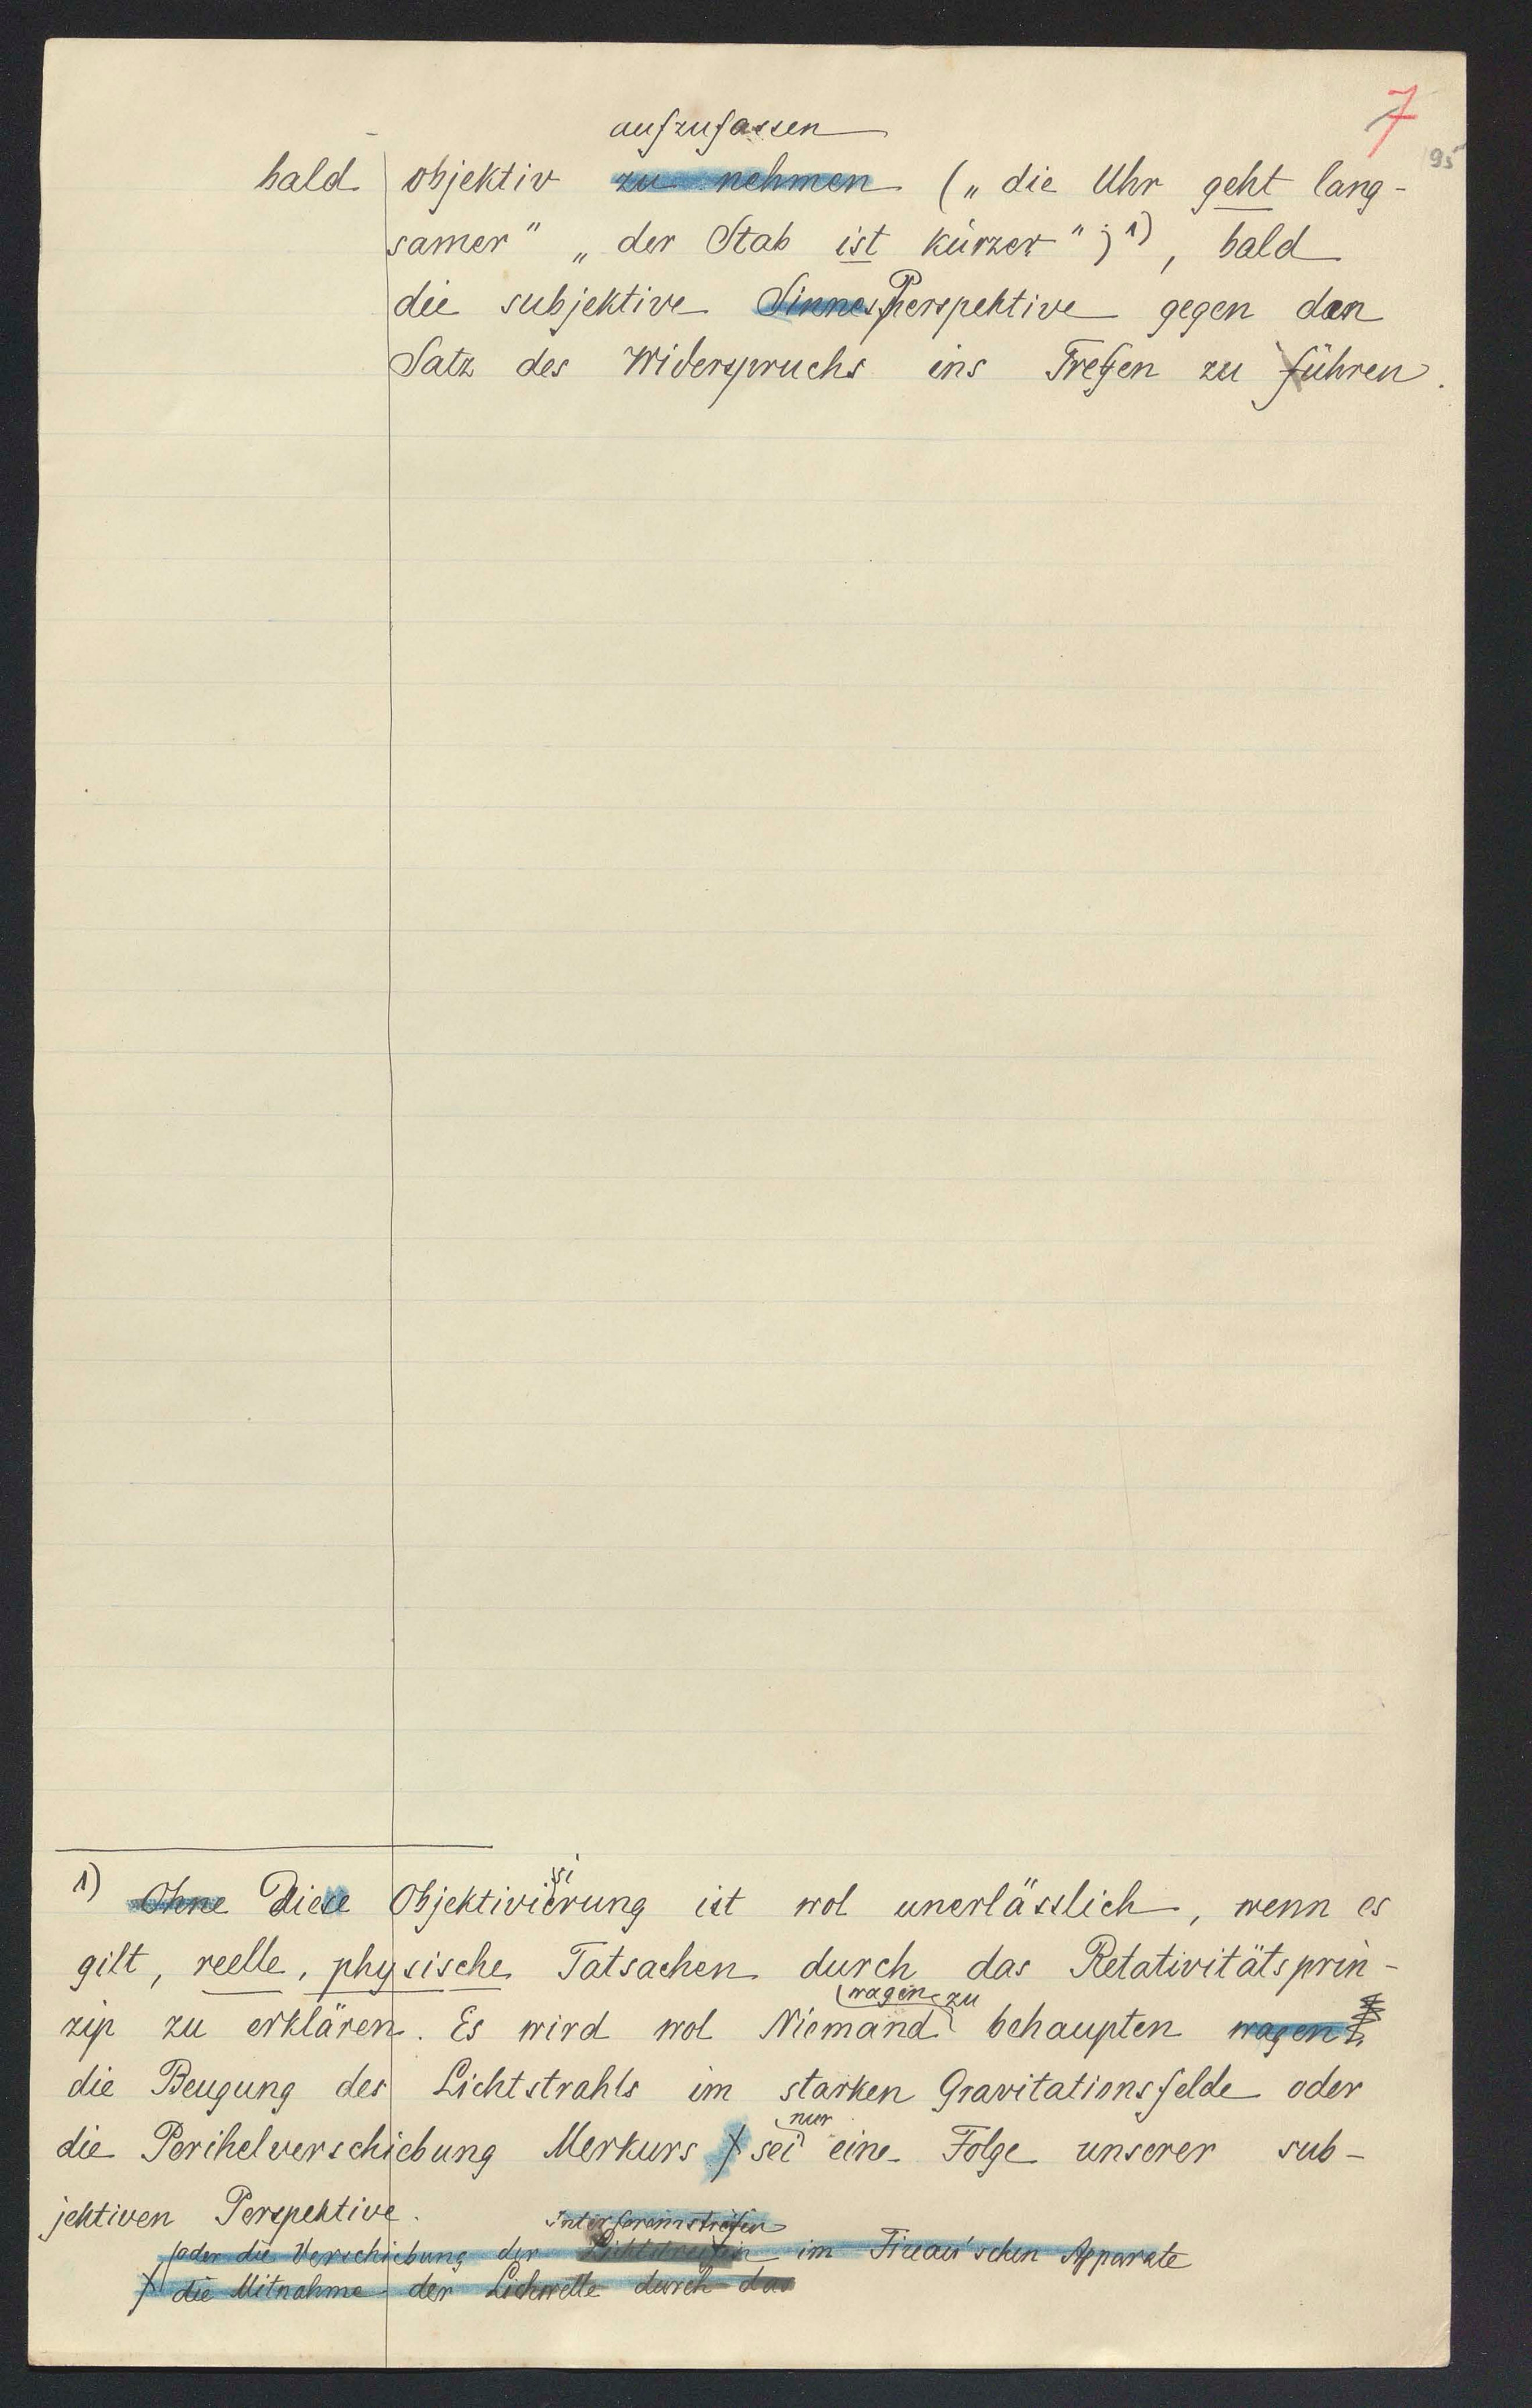 7
95
aufzufassen
bald objektiv zu nehmen („die Uhr geht lang-
samer" „der Stab ist kürzer")¹⁾, bald
die subjektive Sinnesperspektive gegen den
Satz des Widerspruchs ins Treffen zu führen.
1) Ohne Diese Objektivisierung ist wol unerlässlich, wenn es
gilt, reelle, physische Tatsachen durch das Retativitätsprin-
wagen zu
zip zu erklären. Es wird wol Niemand behaupten wagen
die Beugung des Lichtstrahls im starken Gravitationsfelde oder
nur
die Perihelverschiebung Merkurs sei eine Folge unserer sub-
jektiven Perspektive.
Interferenzstreifen
oder die Verschiebung der Lichtstreifen im Fizeau'schen Apparate
die Mitnahme der Lichwelle durch das